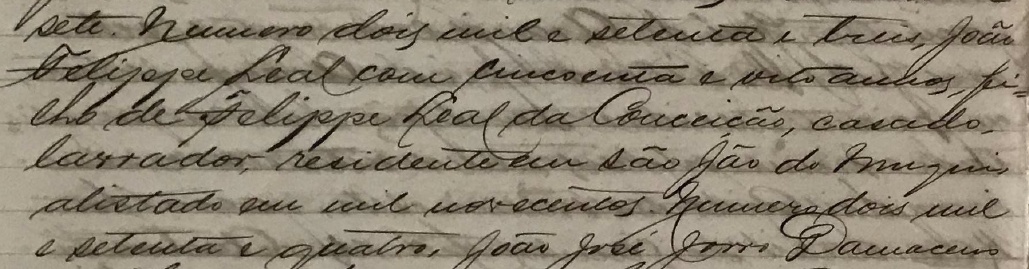 sete. Numero dois mil e setenta e tres, João
Felippe Leal com cincoenta e oito annos, fi-
lho de Felippe Leal da Conceição, casado,
lavrador, residente em São João do Muqui,
alistado em mil novecentos. Numero dois mil
e setenta e quatro, João José Damaceno